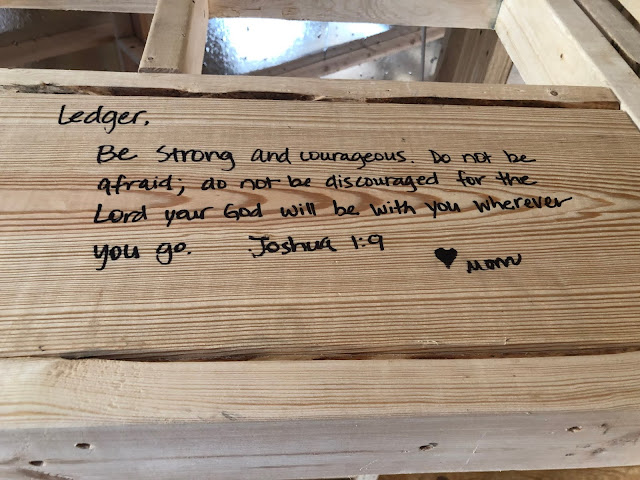 Ledger,
Be strong and courageous. Do not be
afraid; do not be discouraged for the
Lord your God will be with you wherever
you go. Joshua 1:9
♥ Mom